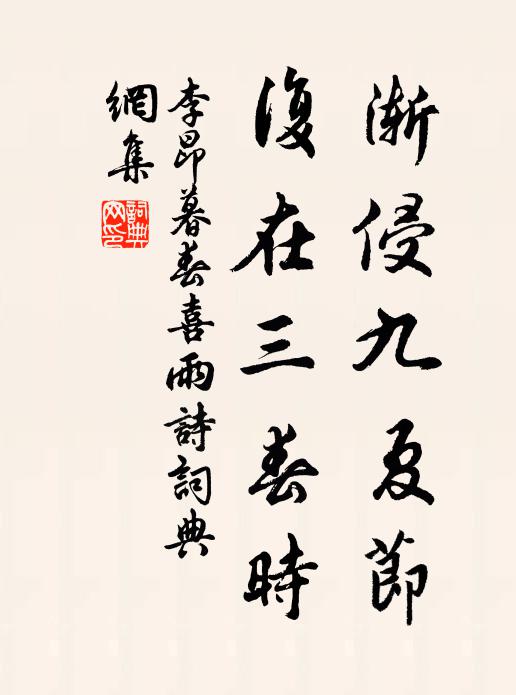 漸侵九夏節
復在三春時
李昂暮春喜雨詩詞典
網集
詞典网印